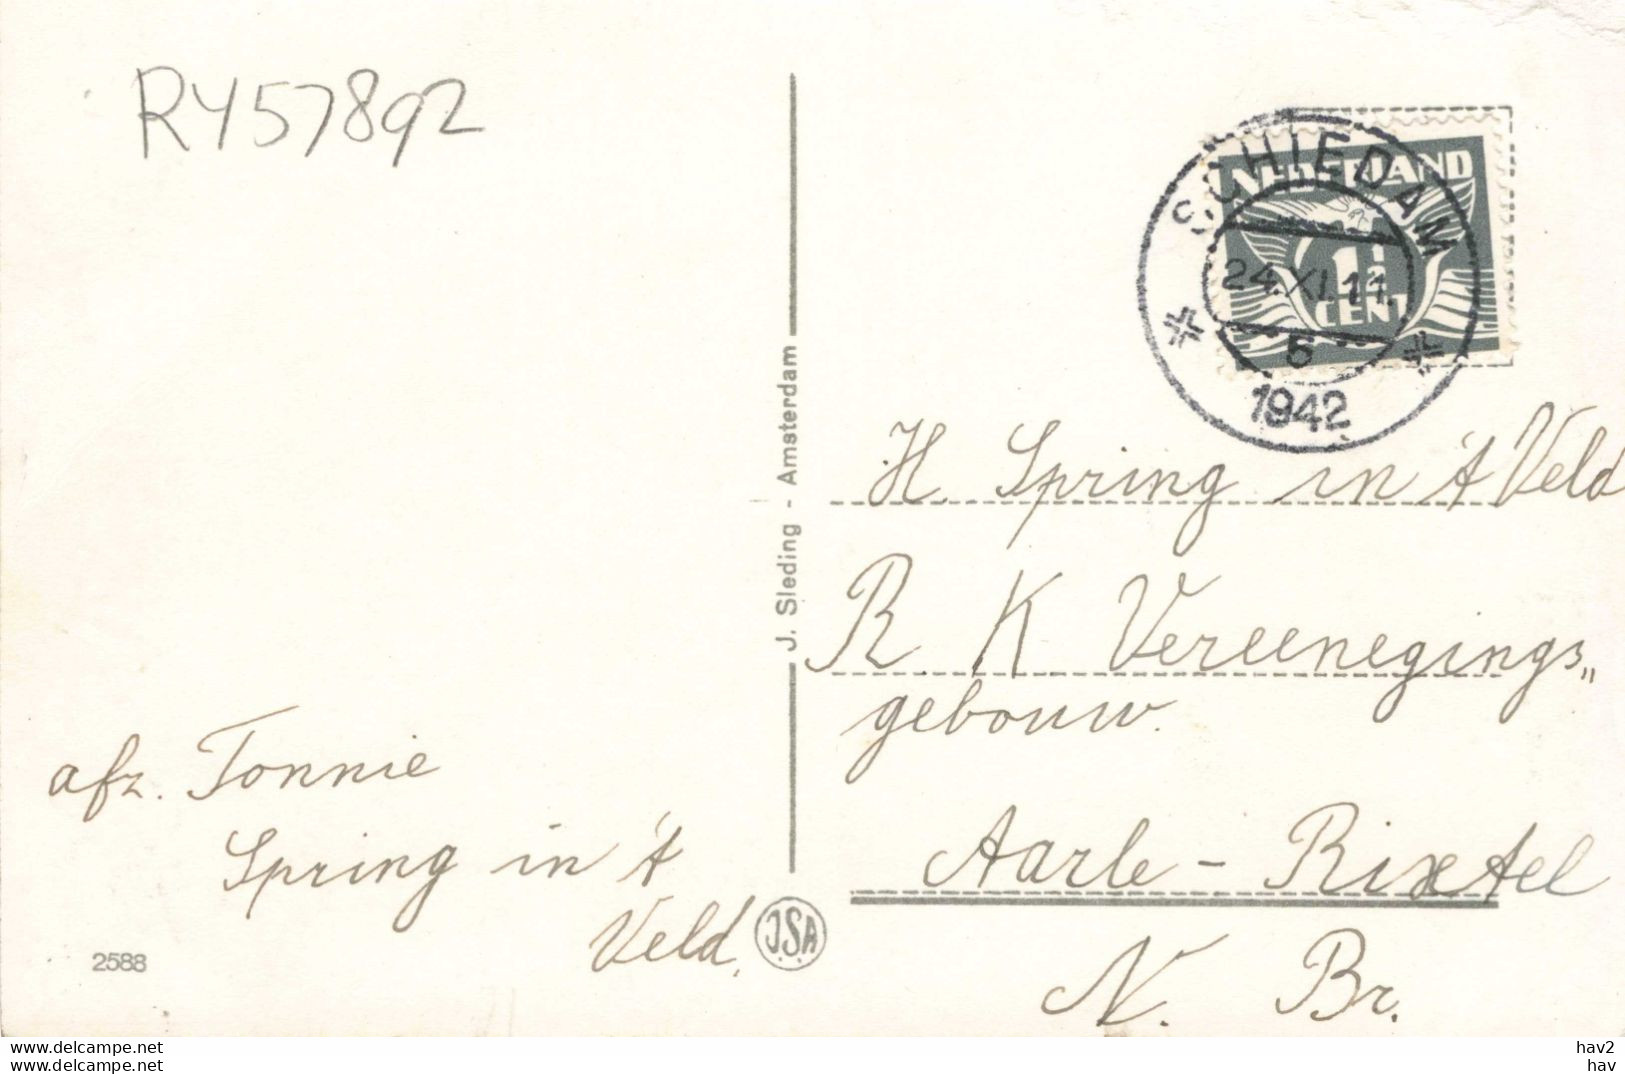 RY57892
SCHIEDAM
NEDERLAND
1½
CENT
24.XI.11.
5
1942
J. Sleding - Amsterdam
H. Spring in 't Veld
R. K Vereenegings„
gebouw.
Aarle - Rixtel
N. Br.
afz. Tonnie
Spring in 't
Veld.
J.S.A.
2588
www.delcampe.net
www.delcampe.net
hav2
hav